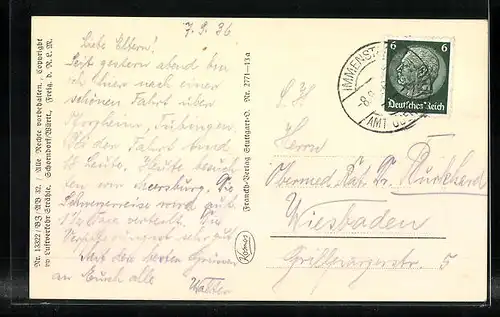 7. 9. 36
Liebe Eltern!
Seit gestern abend bin
ich hier nach einer
schönen Fahrt über
Pforzheim, Tübingen.
Bei der Fahrt sind
Leute. Heute besuch
ten wir Meersburg. Die
wird gut
verteilt. Die
Verpflegung ist sehr gut
Mit den besten Grüssen
an Euch alle
Walter
Nr. 13322/BJ/AB XI. /Alle Rechte vorbehalten. Copyright
by Luftverkehr Strähle, Schorndorf/Württ. Freig. d. R.L.M.
Franckh-Verlag Stuttgart-O. Nr. 2771-13a
Kosmos
IMMENST
-8.9.
AMT
6 6
Deutsches Reich
Herrn
Obermed. Rat Dr. Burkhard
Wiesbaden
Grillparzerstr. 5